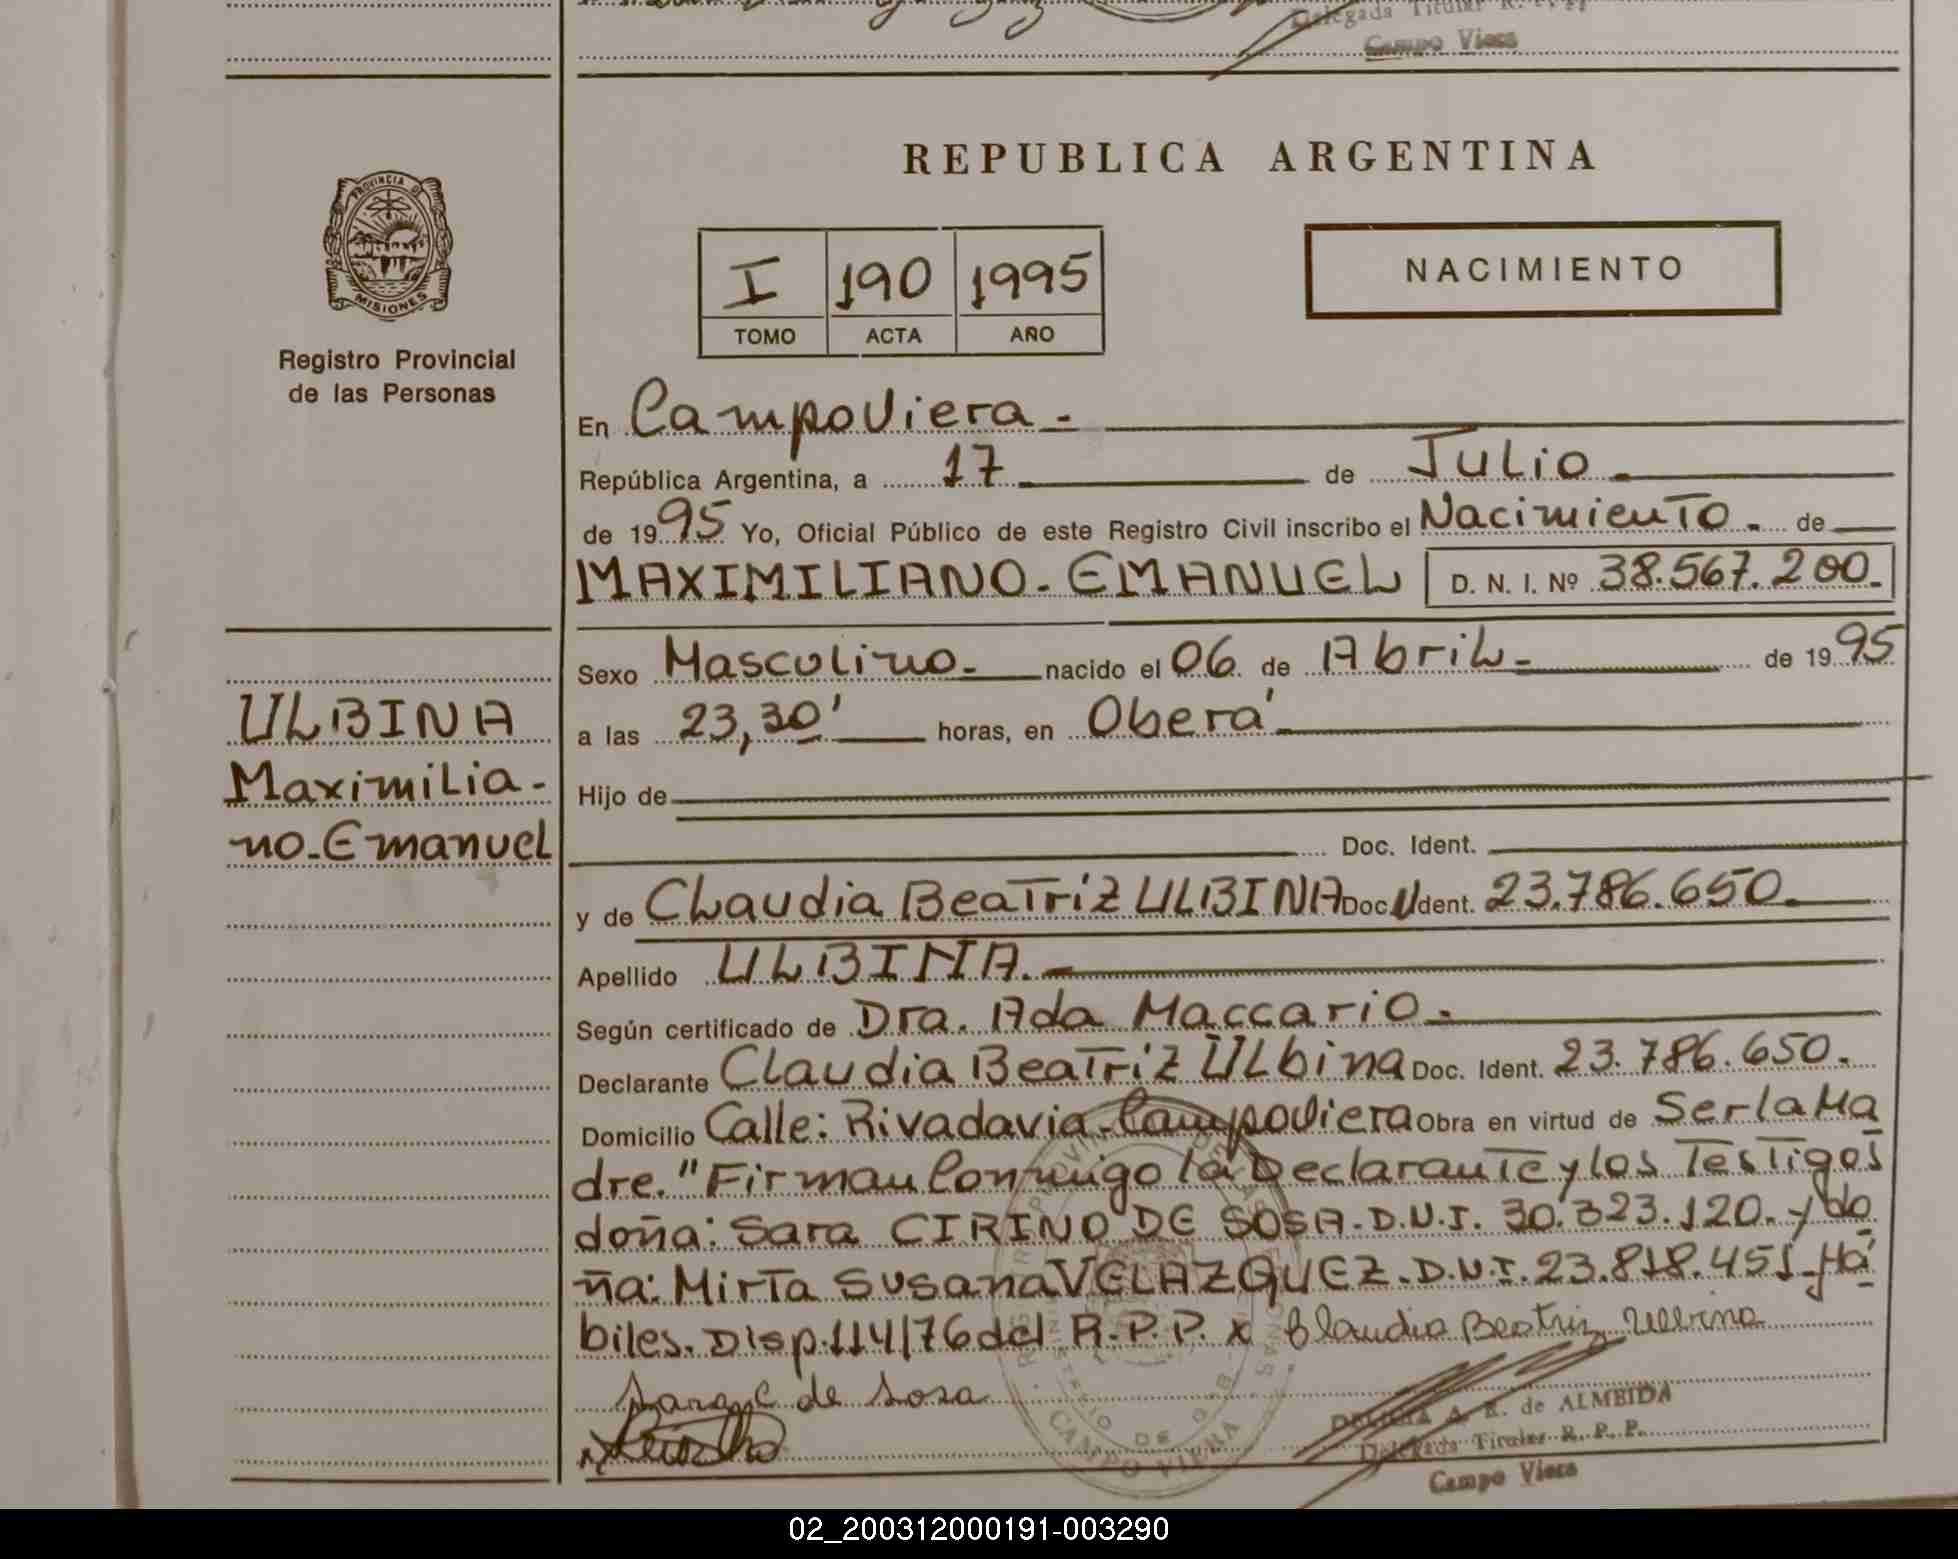 Delegada Titular R. P. P.
Campo Viera
PROVINCIA DE
MISIONES
Registro Provincial
de las Personas
REPUBLICA ARGENTINA
I 190 1995
TOMO ACTA AÑO
NACIMIENTO
En Campo Viera.-
República Argentina, a 17 de Julio.
de 1995 Yo, Oficial Público de este Registro Civil inscribo el Nacimiento. de
MAXIMILIANO-EMANUEL D. N. I. Nº 38.567.200.
Sexo Masculino. nacido el 06 de Abril. de 1995
a las 23,30' horas, en Oberá
Hijo de
Doc. Ident.
y de Claudia Beatriz ULBINA Doc. Ident. 23.786.650.
Apellido ULBINA.
Según certificado de Dra. Ada Maccario.
Declarante Claudia Beatriz Ulbina Doc. Ident. 23.786.650.
Domicilio Calle: Rivadavia-Campo Viera Obra en virtud de Ser la Ma
dre."Firman Conmigo la Declarante y los Testigos
doña: Sara CIRINO DE SOSA-D.N.I. 30.323.120. y do
ña: Mirta Susana VELAZQUEZ-D.N.I. 23.818.451-Há
biles. Disp. 114/76 del R.P.P. x Claudia Beatriz Ulbina
de Sosa
ULBINA
Maximilia-
no-Emanuel
A. R. de ALMEIDA
Delegada Titular R. P. P.
Campo Viera
CAMPO VIERA
02_200312000191-003290